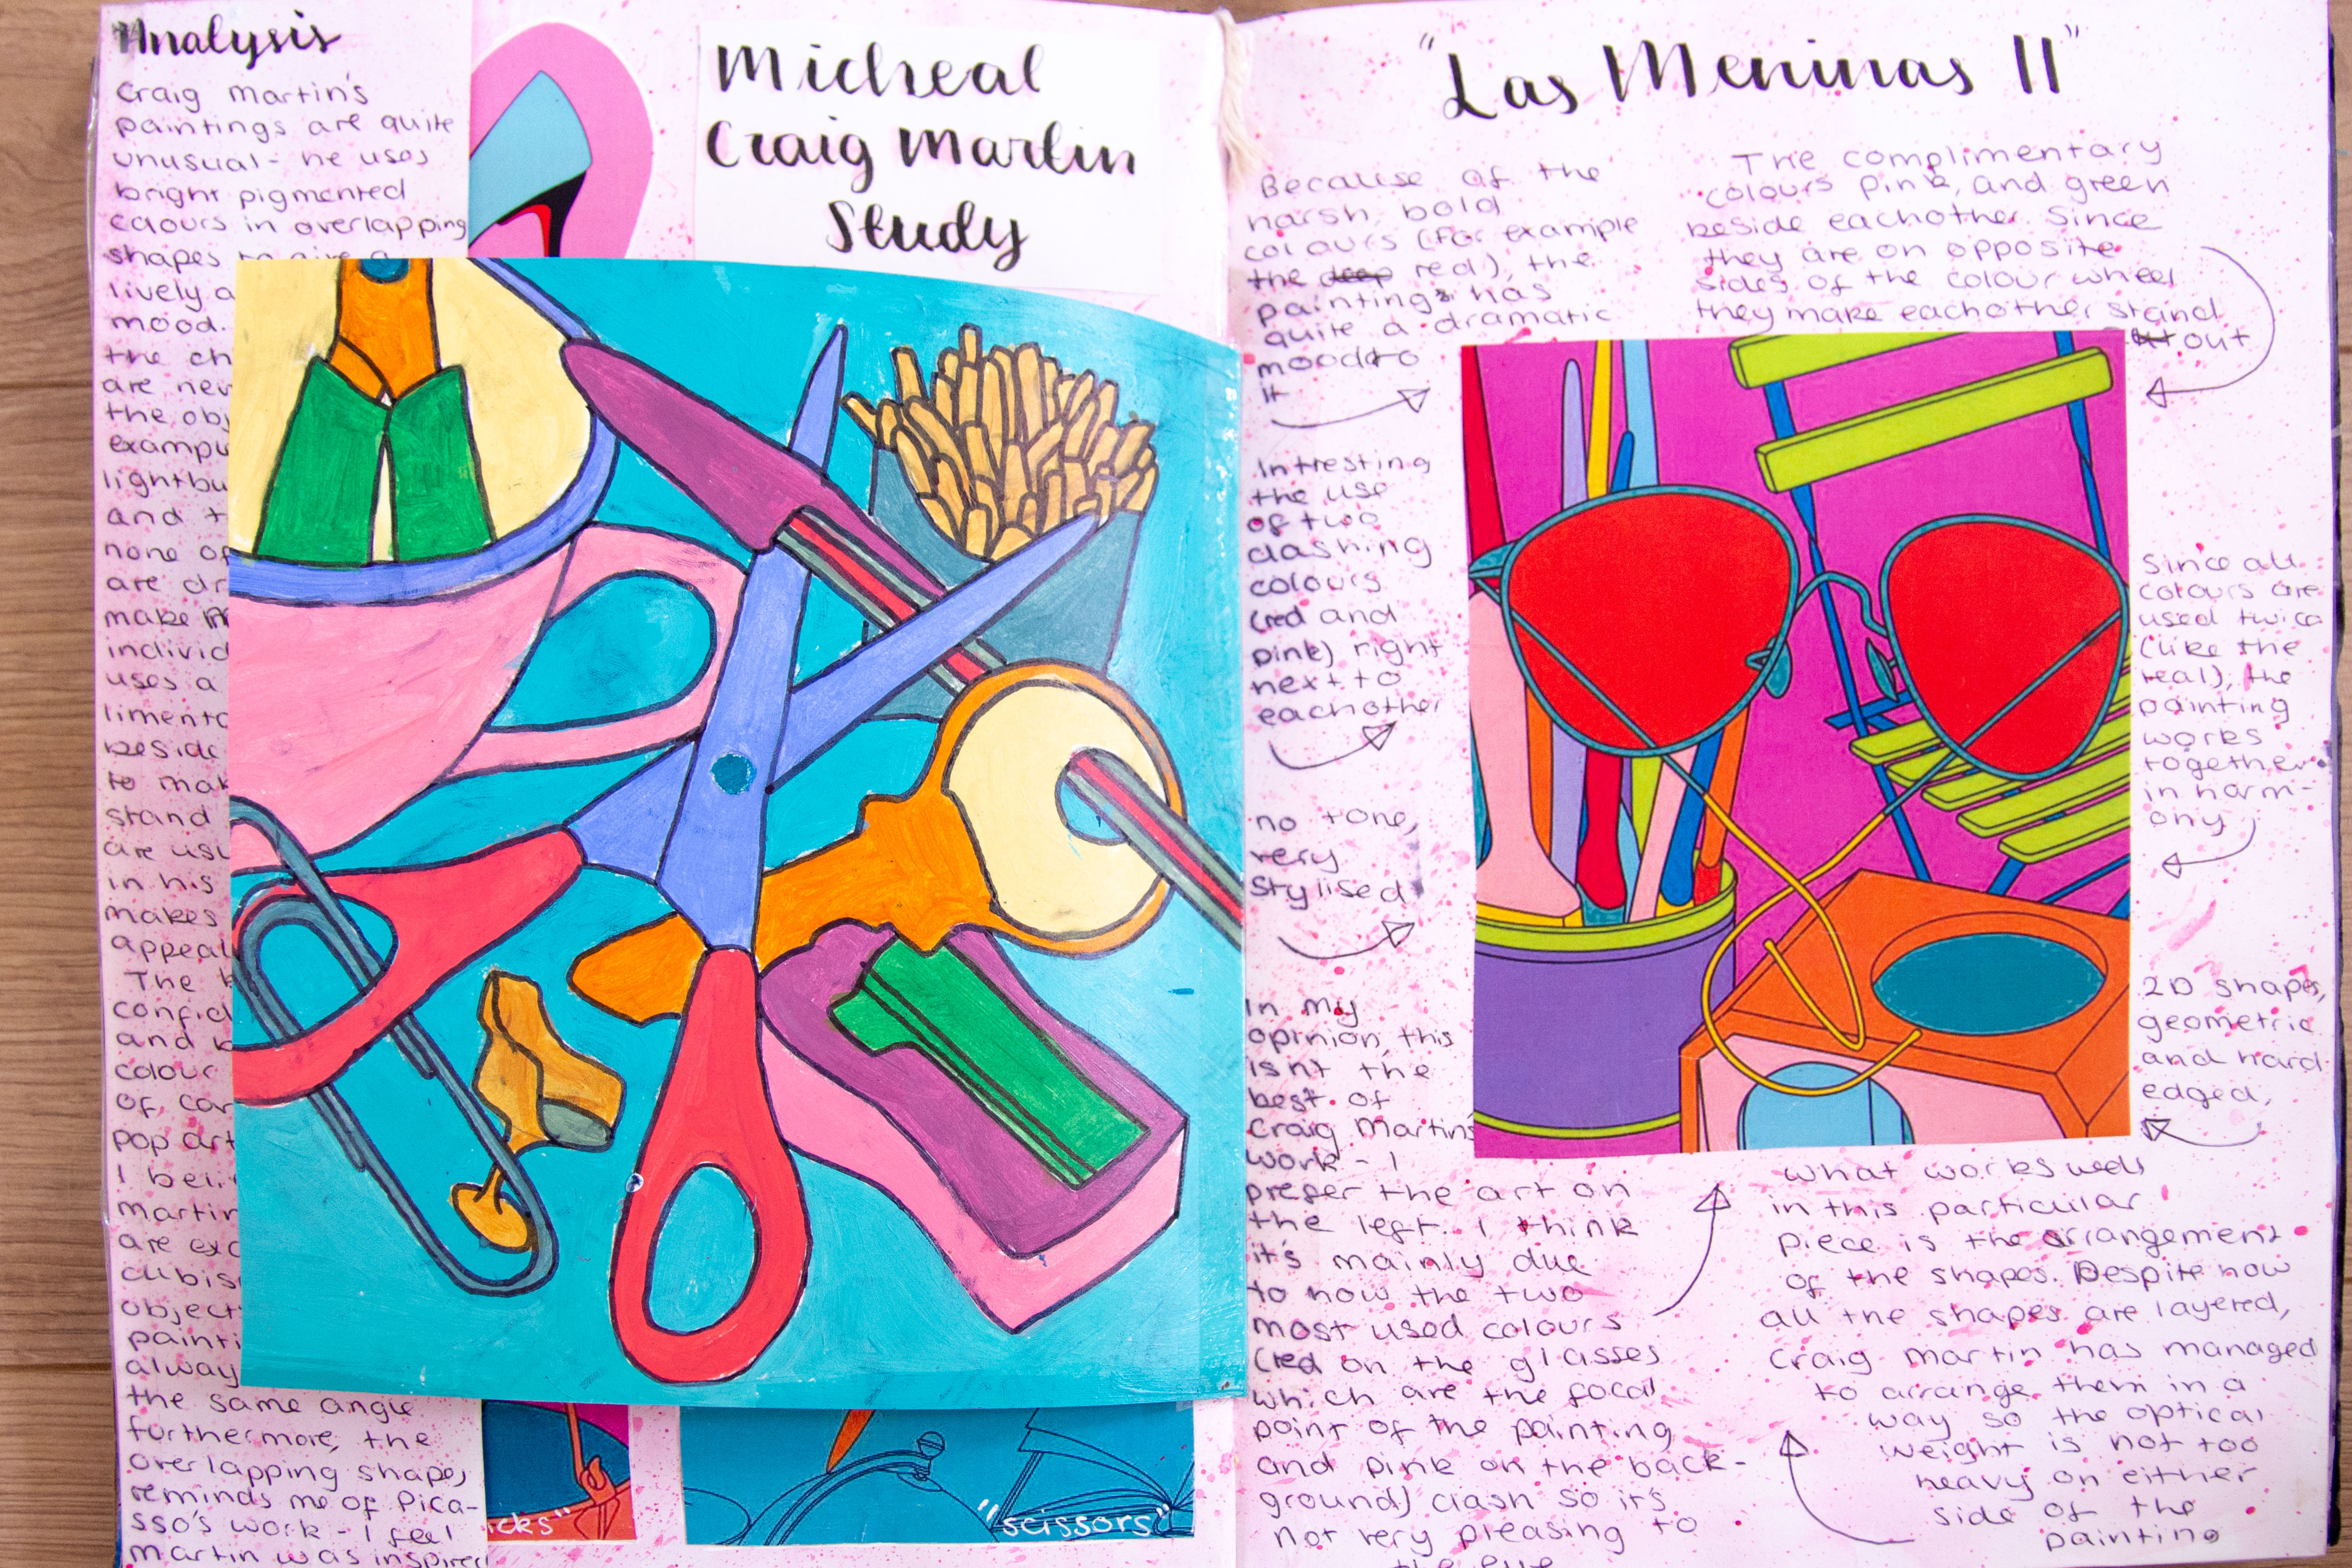 Analysis
Craig Martin's
paintings are quite
unusual - he uses
bright pigmented
colours in overlapping
shapes to give a
lively a
mood.
the ch
are nev
the obj
example
lightbu
and t
none of
are dr
make
individ
uses a
limenta
beside
to mak
stand
are usu
in his
makes
appeal
The b
confid
and b
colour
of car
pop art
I beli
martin
are exc
cubis
object
painti
alway
the same angle
furthermore, the
overlapping shapes
reminds me of Pica-
sso's work - I feel
martin was inspired
Micheal
Craig Martin
Study
icks"
"scissors"
"Las Meninas II"
Because of the
harsh bold
colours (for example
the deep red), the
paintings has
quite a dramatic
mood to
it
The complimentary
colours pink, and green
beside eachother. Since
they are on opposite
sides of the colour wheel
they make eachother stand
out
Intresting
the use
of two
clashing
colours
(red and
pink) right
next to
eachother
no tone,
very
stylised
Since all
colours are
used twice
(like the
teal), the
painting
works
together
in harm-
ony
2D shapes,
geometric
and hard
edged,
In my
opinion, this
isn't the
best of
Craig Martin's
work - I
prefer the art on
the left. I think
it's mainly due
to how the two
most used colours
(red on the glasses
which are the focal
point of the painting
and pink on the back-
ground) clash so it's
not very pleasing to
the eye
What works well
in this particular
piece is the arrangement
of the shapes. Despite how
all the shapes are layered,
Craig martin has managed
to arrange them in a
way so the optical
weight is not too
heavy on either
side of the
painting